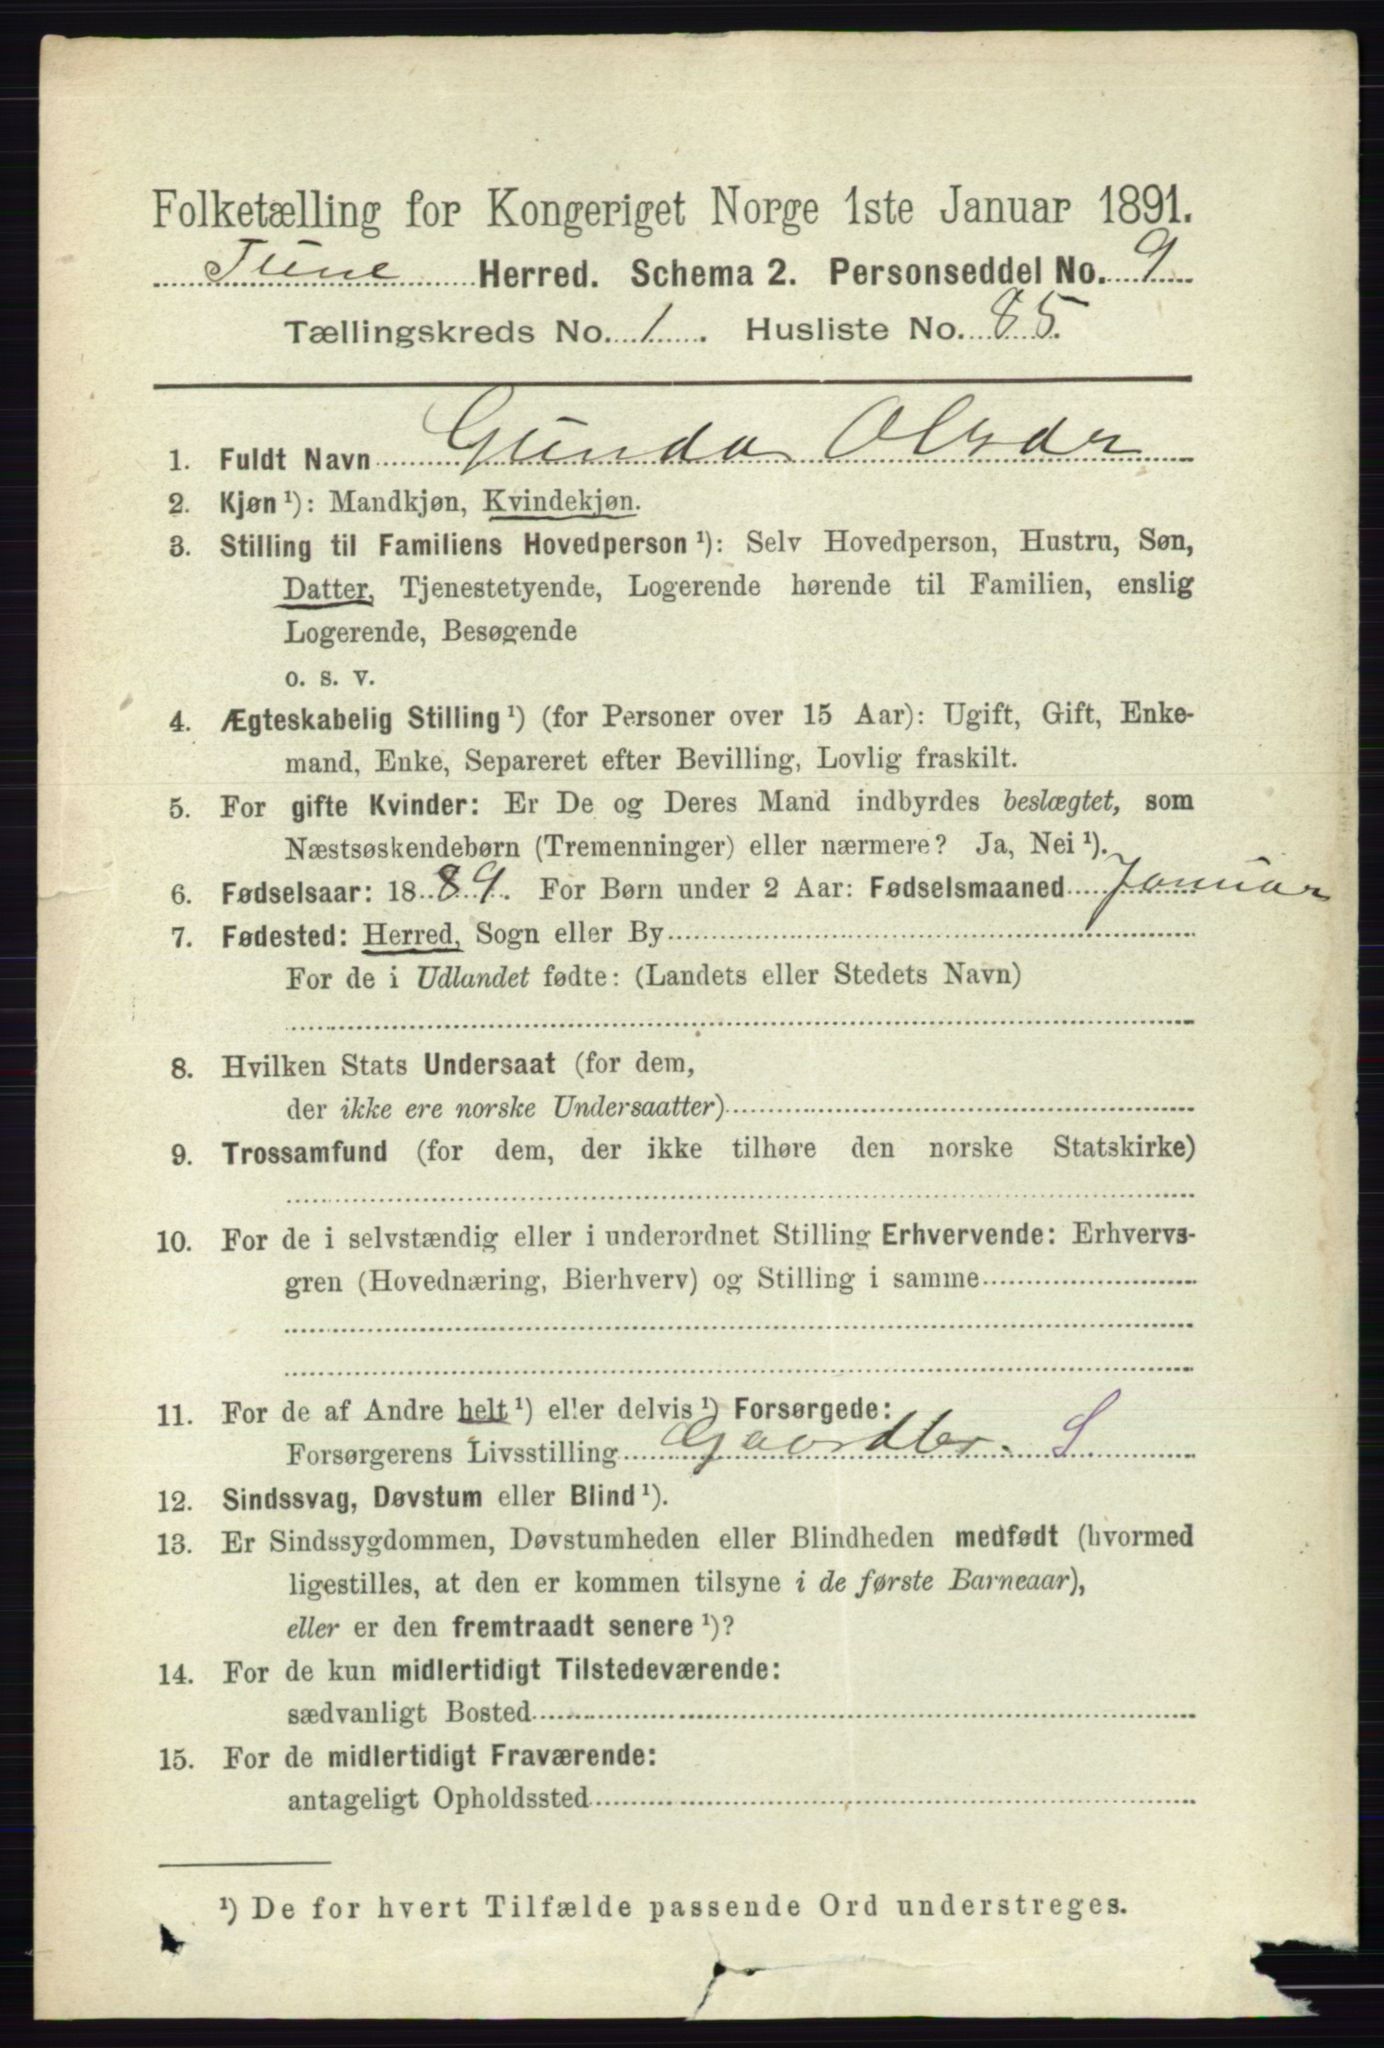 Folketælling for Kongeriget Norge 1ste Januar 1891.
Tune Herred. Schema 2. Personseddel No. 9
Tællingskreds No. 1. Husliste No. 85.
1. Fuldt Navn Gunda Olsdr
2. Kjøn ¹): Mandkjøn, Kvindekjøn.
3. Stilling til Familiens Hovedperson ¹): Selv Hovedperson, Hustru, Søn,
Datter, Tjenestetyende, Logerende hørende til Familien, enslig
Logerende, Besøgende
o. s. v.
4. Ægteskabelig Stilling ¹) (for Personer over 15 Aar): Ugift, Gift, Enke-
mand, Enke, Separeret efter Bevilling, Lovlig fraskilt.
5. For gifte Kvinder: Er De og Deres Mand indbyrdes beslægtet, som
Næstsøskendebørn (Tremenninger) eller nærmere? Ja, Nei ¹).
6. Fødselsaar: 1889. For Børn under 2 Aar: Fødselsmaaned Januar
7. Fødested: Herred, Sogn eller By
For de i Udlandet fødte: (Landets eller Stedets Navn)
8. Hvilken Stats Undersaat (for dem,
der ikke ere norske Undersaatter)
9. Trossamfund (for dem, der ikke tilhøre den norske Statskirke)
10. For de i selvstændig eller i underordnet Stilling Erhvervende: Erhvervs-
gren (Hovednæring, Bierhverv) og Stilling i samme
11. For de af Andre helt ¹) eller delvis ¹) Forsørgede:
Forsørgerens Livsstilling Gaardbr. S
12. Sindssvag, Døvstum eller Blind ¹).
13. Er Sindssygdommen, Døvstumheden eller Blindheden medfødt (hvormed
ligestilles, at den er kommen tilsyne i de første Barneaar),
eller er den fremtraadt senere ¹)?
14. For de kun midlertidigt Tilstedeværende:
sædvanligt Bosted
15. For de midlertidigt Fraværende:
antageligt Opholdssted
¹) De for hvert Tilfælde passende Ord understreges.